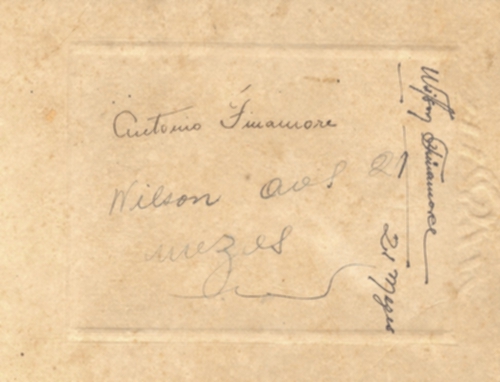 Antonio Finamore
Wilson aos 21
mezes
Wilson Finamore
21 Mezes